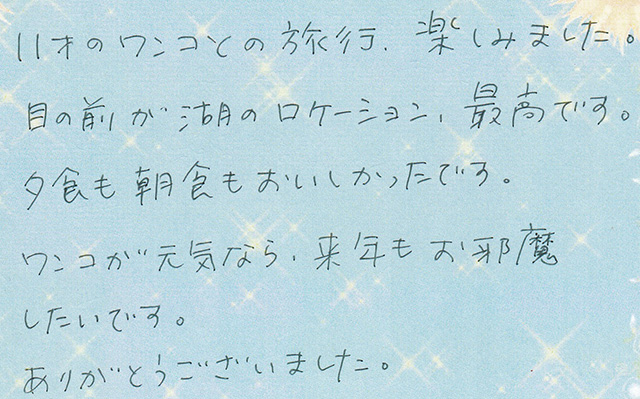 11才のワンコとの旅行、楽しみました。
目の前が湖のロケーション、最高です。
夕食も朝食もおいしかったです。
ワンコが元気なら、来年もお邪魔
したいです。
ありがとうございました。